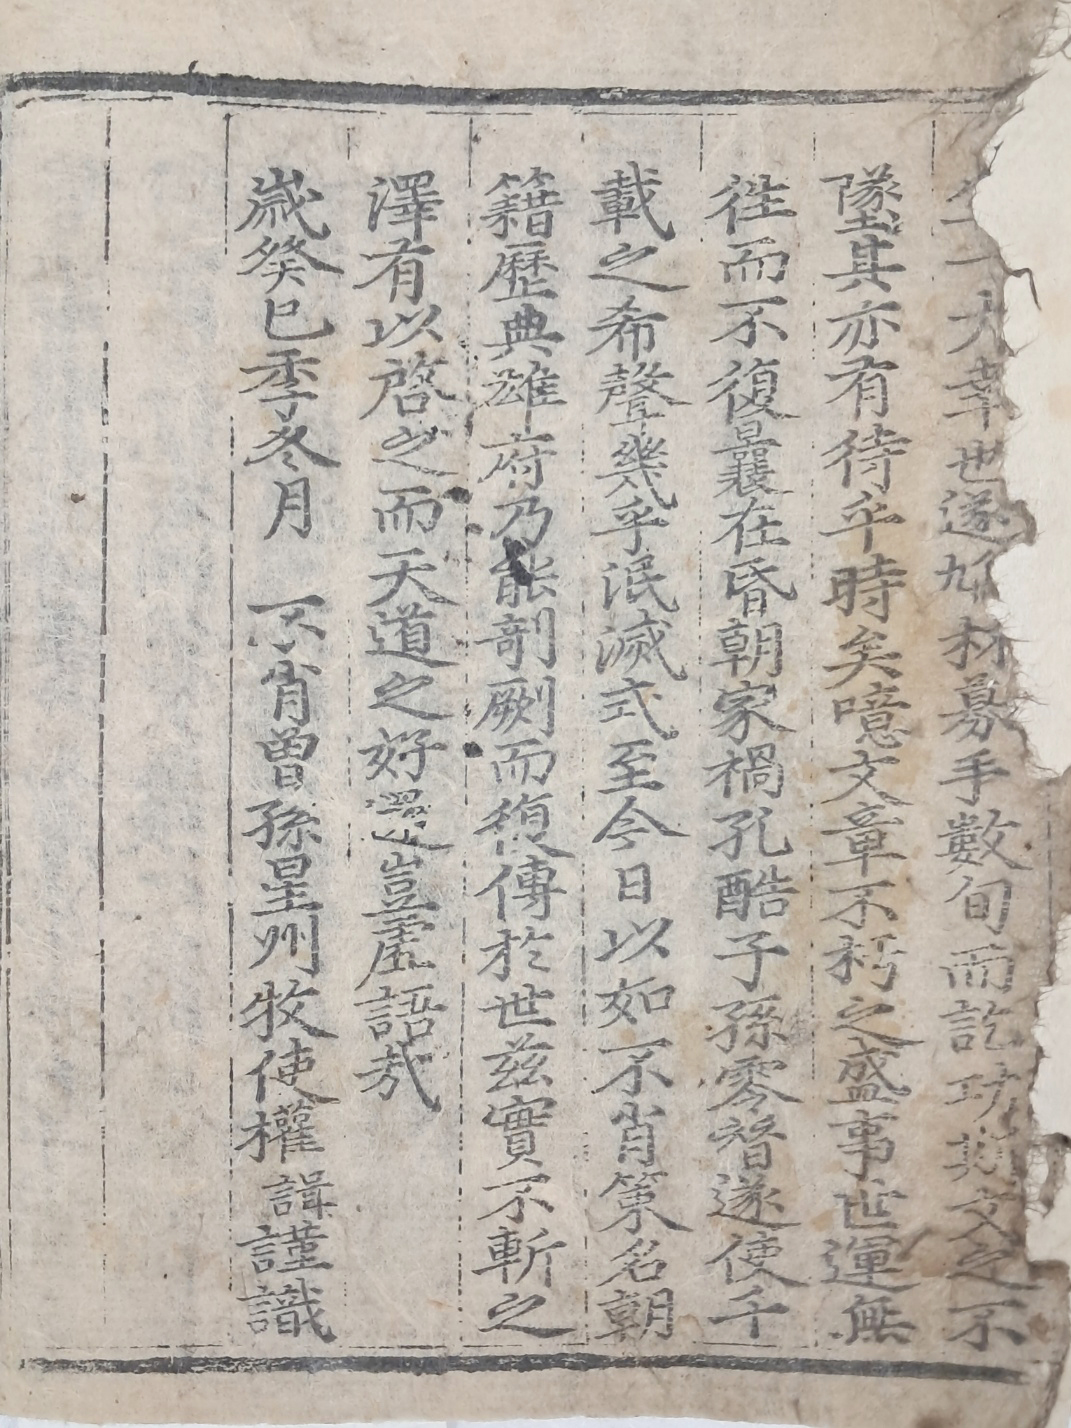 幸也遂鳩材募手數旬而訖功斯文之不
墜其亦有待乎時矣噫文章不朽之盛事世運無
徃而不復曩在昏朝家禍孔酷子孫零替遂使千
載之希聲幾乎泯滅式至今日以如不肖策名朝
籍歷典雄府乃能剞劂而復傳於世玆實不斬之
澤有以啓之而天道之好還豈虛語哉
歲癸巳季冬月 不肖曾孫星州牧使權諿謹識